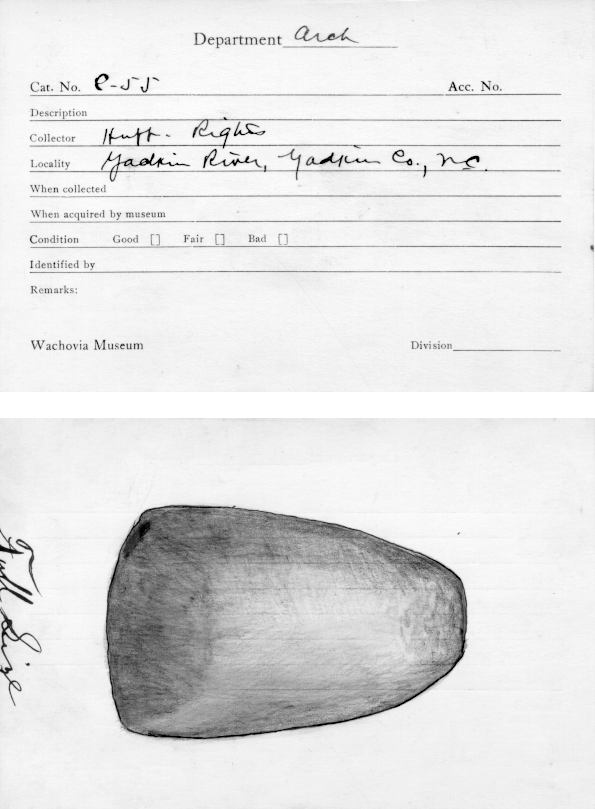 Department Arch
Cat. No. P-55 Acc. No.
Description
Collector Huff - Rights
Locality Yadkin River, Yadkin Co., N.C.
When collected
When acquired by museum
Condition Good [] Fair [] Bad []
Identified by
Remarks:
Wachovia Museum Division
Full Size